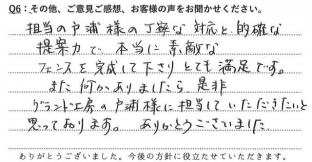 Q6：その他、ご意見ご感想、お客様の声をお聞かせください。
担当の戸浦様の丁寧な対応と、的確な
提案力で、本当に素敵な
フェンスを完成して下さりとても満足です。
また何かありましたら、是非
グラント工房の戸浦様に担当していただきたいと
思っております。ありがとうございました
ありがとうございました。今後の方針に役立たせていただきます。